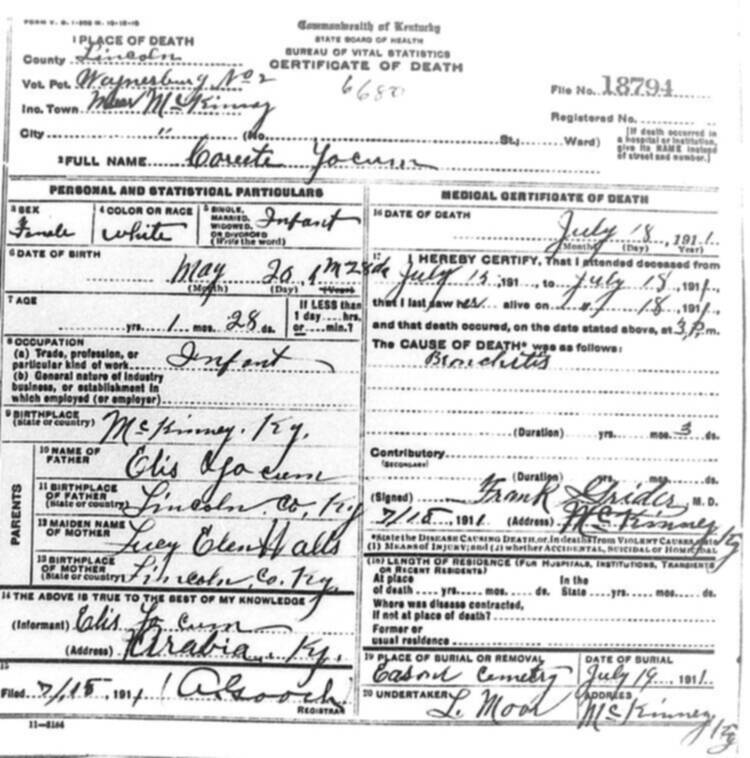 FORM V. S. 1-
Commonwealth of Kentucky
STATE BOARD OF HEALTH
BUREAU OF VITAL STATISTICS
CERTIFICATE OF DEATH
1 PLACE OF DEATH
County Lincoln
Vot. Pct. Waynesburg No 2
Inc. Town Near McKinney
City " (No. St.; Ward)
6680
File No. 18794
Registered No.
[If death occurred in a hospital or institution, give its NAME instead of street and number.]
2 FULL NAME Yocum
PERSONAL AND STATISTICAL PARTICULARS
3 SEX Female
4 COLOR OR RACE white
5 SINGLE, MARRIED, WIDOWED, OR DIVORCED (Write the word) Infant
6 DATE OF BIRTH
May 20, 1 M 28 da
(Month) (Day) (Year)
7 AGE
yrs. 1 mos. 28 ds.
If LESS than 1 day hrs. or min.?
8 OCCUPATION
(a) Trade, profession, or particular kind of work Infant
(b) General nature of industry business, or establishment in which employed (or employer)
9 BIRTHPLACE
(State or country) McKinney, Ky.
PARENTS
10 NAME OF FATHER Elis Yocum
11 BIRTHPLACE OF FATHER (State or country) Lincoln, Co, Ky
12 MAIDEN NAME OF MOTHER Lucy Elen Walls
13 BIRTHPLACE OF MOTHER (State or country) Lincoln, Co. Ky.
14 THE ABOVE IS TRUE TO THE BEST OF MY KNOWLEDGE
(Informant) Elis Yocum
(Address) Arabia, Ky.
15
Filed 7/18 1911 A Gooch
REGISTRAR
11-3184
MEDICAL CERTIFICATE OF DEATH
16 DATE OF DEATH
July 18, 1911
(Month) (Day) (Year)
17 I HEREBY CERTIFY, That I attended deceased from
July 15, 191 , to July 18, 1911
that I last saw her alive on " 18, 1911
and that death occured, on the date stated above, at 3 P. m.
The CAUSE OF DEATH* was as follows:
Bronchitis
(Duration) yrs. mos. 3 ds.
Contributory
(SECONDARY)
(Duration) yrs. mos. ds.
(Signed) Frank Grider M. D.
7/18 1911 (Address) McKinney Ky
*State the DISEASE CAUSING DEATH, or, in deaths from VIOLENT CAUSES, state
(1) MEANS OF INJURY; and (2) whether ACCIDENTAL, SUICIDAL or HOMICIDAL
(18) LENGTH OF RESIDENCE (FOR HOSPITALS, INSTITUTIONS, TRANSIENTS OR RECENT RESIDENTS)
At place of death yrs. mos. ds.
In the State yrs. mos. ds.
Where was disease contracted, if not at place of death?
Former or usual residence
19 PLACE OF BURIAL OR REMOVAL
Cemetry
DATE OF BURIAL
July 19, 1911
20 UNDERTAKER
L. Moor
ADDRESS
McKinney Ky